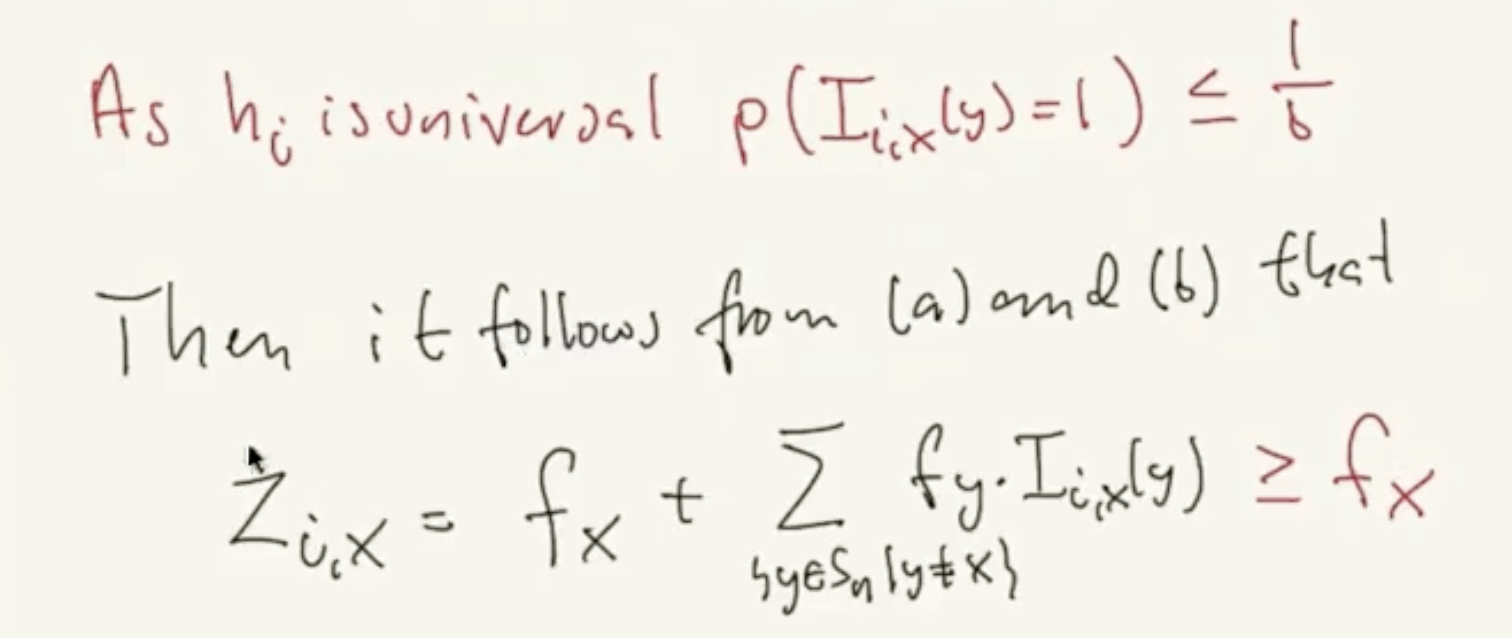 As h_i is universal p(I_{i,x}(y)=1) ≤ 1/b
Then it follows from (a) and (b) that
Z_{i,x} = f_x + Σ_{{y∈S_n|y≠x}} f_y · I_{i,x}(y) ≥ f_x